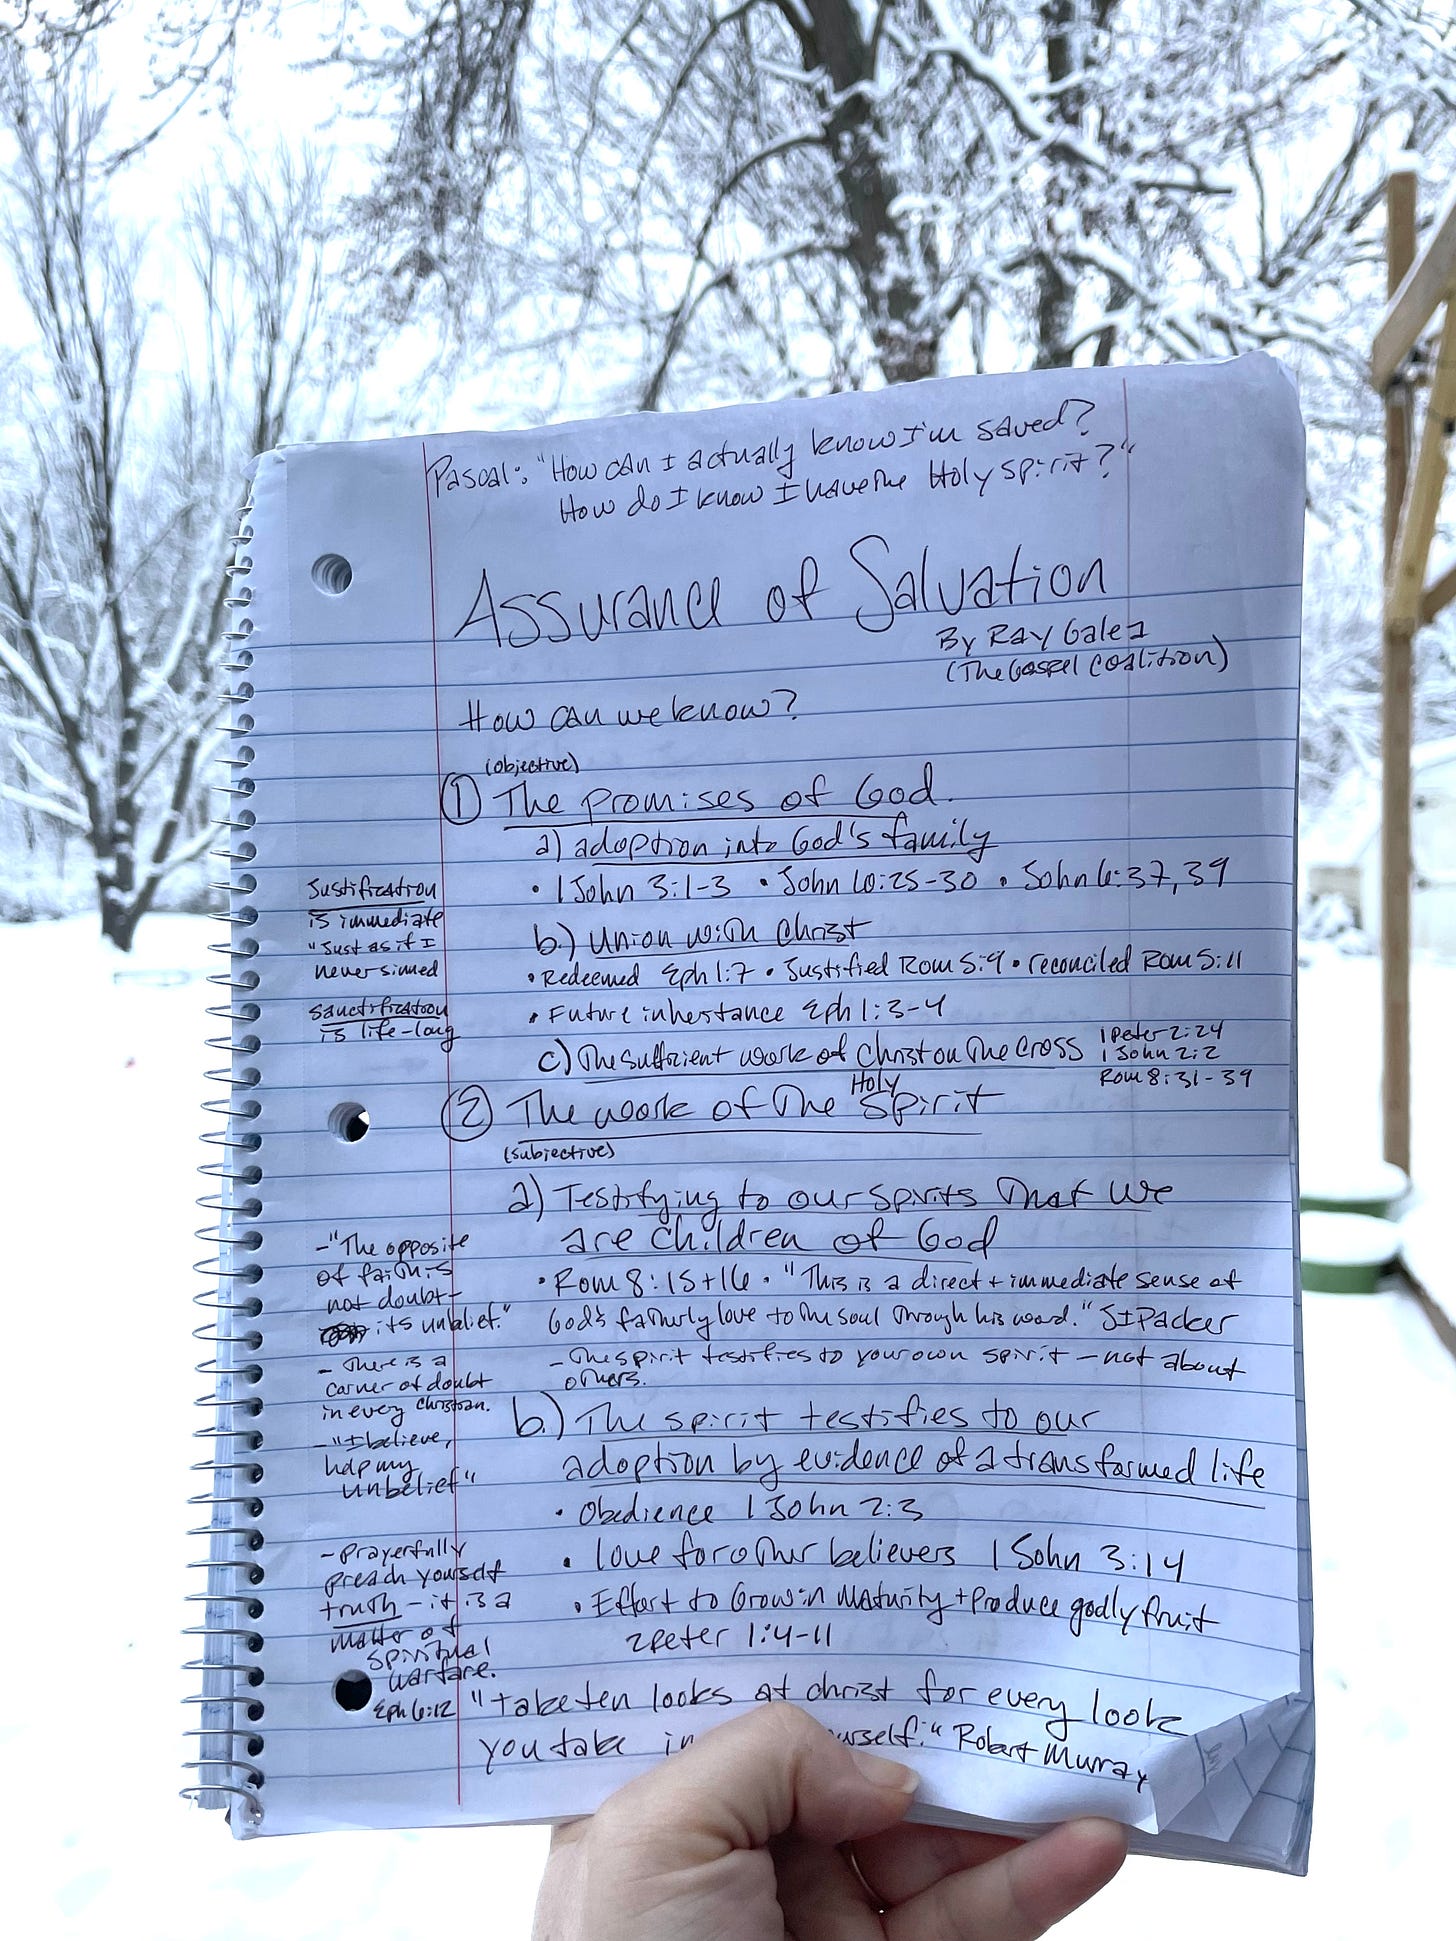 Pascal: "How can I actually know I'm saved?
How do I know I have the Holy Spirit?"
Assurance of Salvation
By Ray Galea
(The Gospel Coalition)
How can we know?
(objective)
① The promises of God.
a) adoption into God's family
• 1 John 3:1-3 • John 10:25-30 • John 6:37,39
b.) Union with Christ
• Redeemed Eph 1:7 • Justified Rom 5:9 • reconciled Rom 5:11
• Future inheritance Eph 1:3-4
c) The sufficient work of Christ on the cross
1 Peter 2:24
1 John 2:2
Rom 8:31-39
Justification
is immediate
"Just as if I
never sinned
Sanctification
is life-long
② The work of the Holy Spirit
(subjective)
a) Testifying to our spirits that we
are children of God
• Rom 8:15+16 • "This is a direct + immediate sense of
God's fatherly love to the soul through his word." JI Packer
- The spirit testifies to your own spirit - not about
others.
b.) The spirit testifies to our
adoption by evidence of a transformed life
• Obedience 1 John 2:3
• love for other believers 1 John 3:14
• Effort to Grow in Maturity + produce godly fruit
2 Peter 1:4-11
- "The opposite
of faith is
not doubt-
its unbelief."
- There is a
corner of doubt
in every Christian.
- "I believe,
help my
unbelief"
- prayerfully
preach yourself
truth - it is a
matter of
spiritual
warfare.
Eph 6:12
"take ten looks at christ for every look
you take in Robert Murray